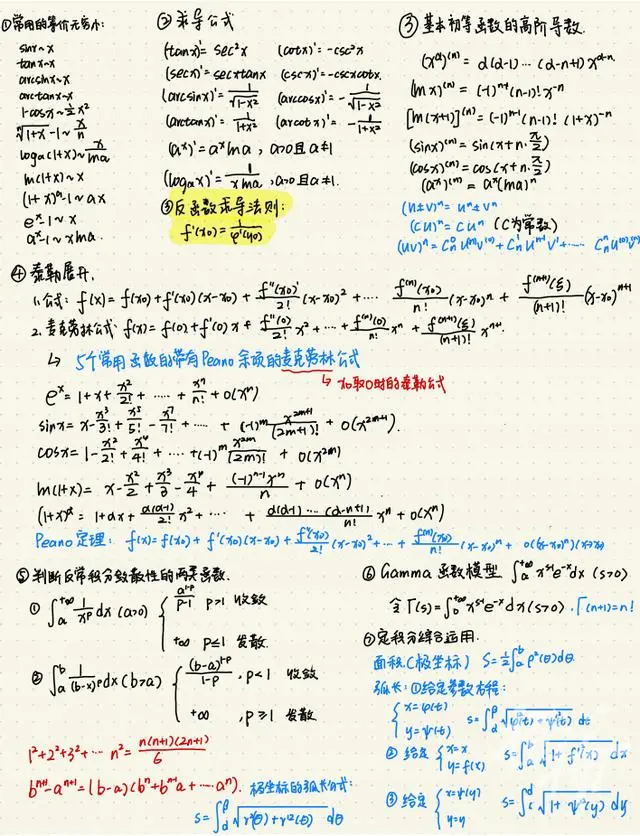 ①常用的等价无穷小:
sinx~x
tanx~x
arcsinx~x
arctanx~x
1-cosx~½x²
ⁿ√(1+x) -1~x/n
logₐ(1+x)~x/lna
ln(1+x)~x
(1+x)ᵃ-1~ax
eˣ-1~x
aˣ-1~xlna.
② 求导公式
(tanx)'= sec²x (cotx)'= -csc²x
(secx)'= secxtanx (cscx)'= -cscxcotx.
(arcsinx)'= 1/√(1-x²) (arccosx)'= -1/√(1-x²)
(arctanx)'= 1/(1+x²) (arcotx)'= -1/(1+x²)
(aˣ)'= aˣlna , a>0且a≠1
(logₐx)'= 1/(xlna) , a>0且a≠1.
③反函数求导法则:
f'(x₀)= 1/φ'(y₀)
③ 基本初等函数的高阶导数.
(x^α)^(n) = α(α-1)…(α-n+1) x^(α-n)
(lnx)^(n) = (-1)^(n-1)(n-1)! x^(-n)
[ln(x+1)]^(n) = (-1)^(n-1)(n-1)! (1+x)^(-n)
(sinx)^(n) = sin(x+n·π/2)
(cosx)^(n) = cos(x+n·π/2)
(aˣ)^(n) = aˣ(lna)ⁿ
(u±v)ⁿ = uⁿ±vⁿ
(cu)ⁿ = cuⁿ (c为常数)
(uv)ⁿ = Cₙ⁰u^(n)v^(0)+Cₙ¹u^(n-1)v'+…… Cₙⁿu^(0)v^(n)
④ 泰勒展开.
1.公式: f(x) = f(x₀)+f'(x₀)(x-x₀) + f''(x₀)/2! (x-x₀)² + … f^(n)(x₀)/n! (x-x₀)ⁿ + f^(n+1)(ξ)/(n+1)! (x-x₀)^(n+1)
2.麦克劳林公式: f(x) = f(0)+f'(0)x + f''(0)/2! x² + … + f^(n)(0)/n! xⁿ + f^(n+1)(ξ)/(n+1)! x^(n+1)
↳ 5个常用函数的带有Peano余项的麦克劳林公式
↳ x₀取0时的泰勒公式
eˣ = 1+x+x²/2!+ …… + xⁿ/n! + o(xⁿ)
sinx = x-x³/3!+x⁵/5!-x⁷/7!+ …… + (-1)^m x^(2m+1)/(2m+1)! + o(x^(2m+1)).
cosx = 1-x²/2!+x⁴/4!+ … +(-1)^m x^(2m)/(2m)! + o(x^(2m))
ln(1+x) = x-x²/2+x³/3-x⁴/4+ (-1)^(n-1)xⁿ/n + o(xⁿ)
(1+x)^α = 1+αx+α(α-1)/2! x²+ …… + α(α-1)…(α-n+1)/n! xⁿ + o(xⁿ)
Peano定理: f(x)=f(x₀)+f'(x₀)(x-x₀)+f''(x₀)/2! (x-x₀)²+…+f^(n)(x₀)/n! (x-x₀)ⁿ+ o((x-x₀)ⁿ)(x→x₀)
⑤ 判断反常积分敛散性的两类函数.
① ∫ₐ^(+∞) 1/x^p dx (a>0) { a^(1-p)/(p-1) p>1 收敛
+∞ p≤1 发散.
② ∫ₐᵇ 1/(b-x)^p dx (b>a) { (b-a)^(1-p)/(1-p) , p<1 收敛
+∞ , p≥1 发散
1²+2²+3²+… n² = n(n+1)(2n+1)/6
b^(n+1)-a^(n+1)=(b-a)(bⁿ+b^(n-1)a+……aⁿ).
极坐标的弧长公式:
s=∫_α^β √(r²(θ)+r'²(θ)) dθ
⑥ Gamma函数模型 ∫ₐ^(+∞) x^(s-1)e^(-x)dx (s>0)
令Γ(s)=∫₀^(+∞) x^(s-1)e^(-x)dx(s>0). Γ(n+1)=n!
⑦定积分综合运用.
面积(极坐标) S=½∫ₐᵝρ²(θ)dθ
弧长:①给定参数方程:
{ x=φ(t) y=ψ(t) s=∫_α^β √(φ'²(t)+ψ'²(t)) dt
② 给定 { x=x y=f(x) s=∫ₐᵇ √(1+f'²(x)) dx
③ 给定 { x=ψ(y) y=y s=∫_c^d √(1+ψ'²(y)) dy